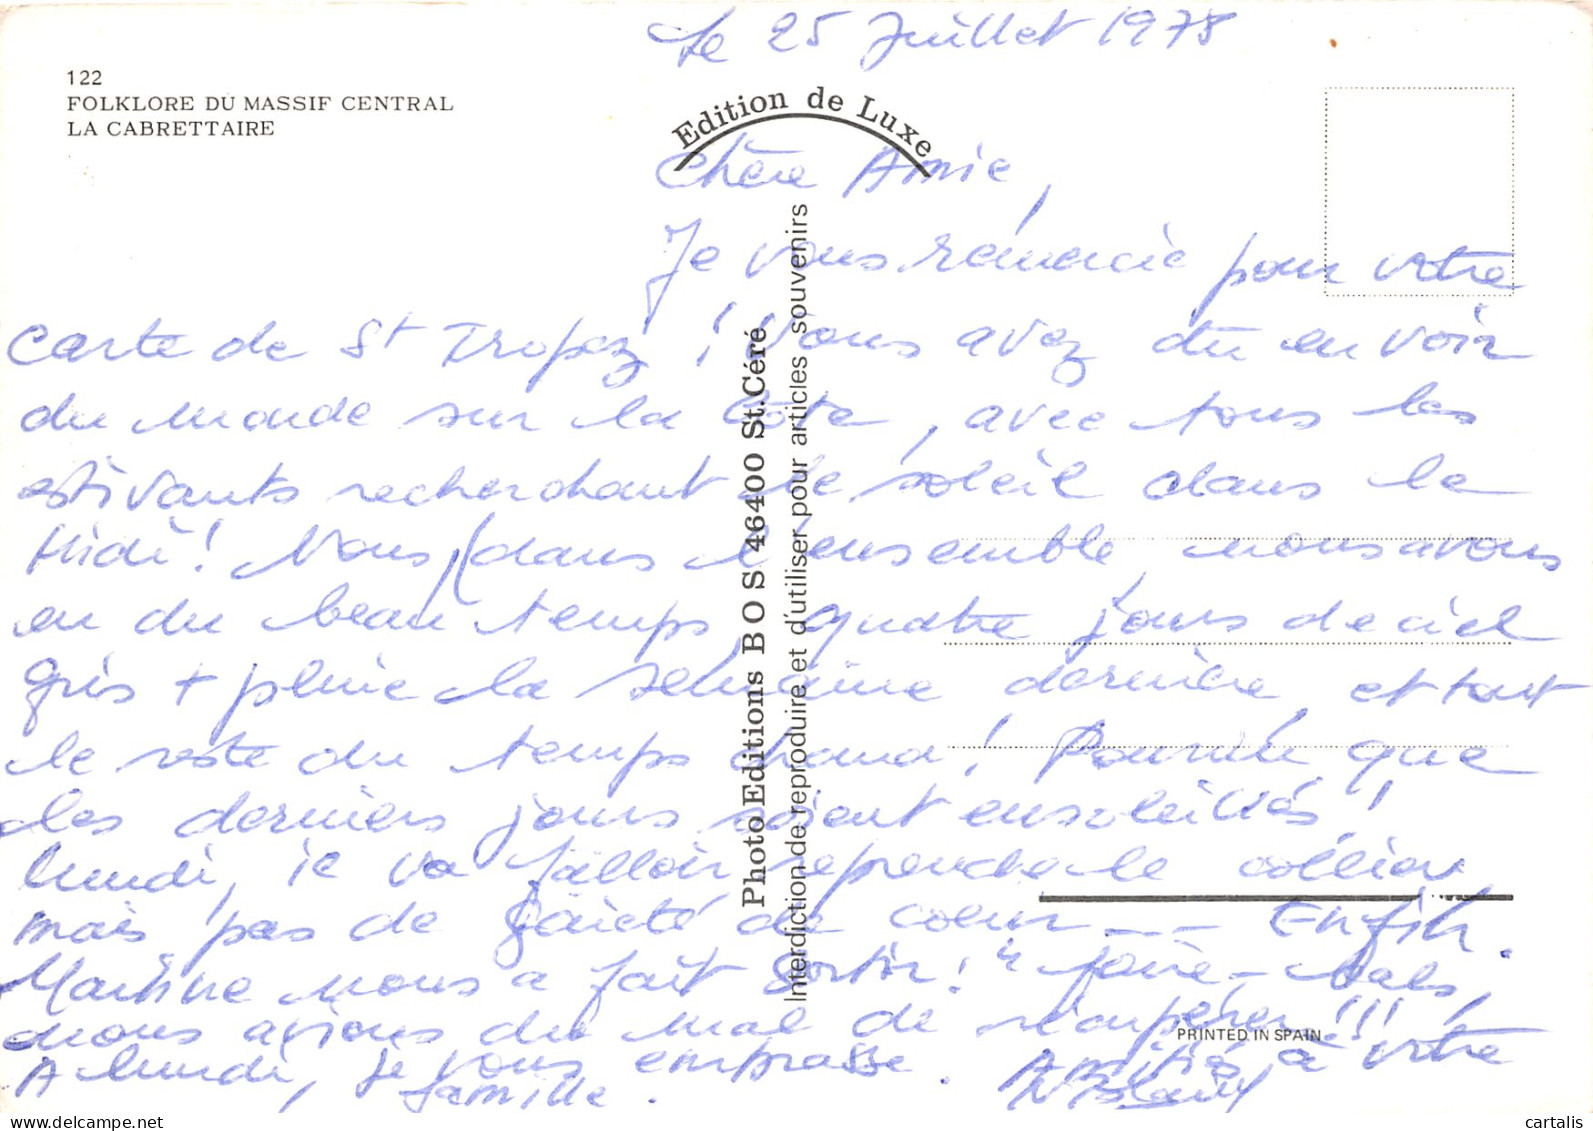 Le 25 Juillet 1978
122
FOLKLORE DU MASSIF CENTRAL
LA CABRETTAIRE
Edition de Luxe
Chère Amie,
Je vous remercie pour votre
carte de St Tropez ! Vous avez dû en voir
du monde sur la Côte, avec tous les
estivants recherchant le soleil dans le
Midi ! Nous (dans l'ensemble, nous avons
eu du beau temps, quatre jours de ciel
gris + pluie la semaine dernière, et tout
le reste du temps chaud ! Pourvu que
les derniers jours soient ensoleillés !
lundi, il va falloir reprendre le collier
mais pas de gaieté de coeur --- Enfin.
Martine nous a fait sortir ! " foire - bals,
nous avions du mal de récupérer !!!
A lundi, je vous embrasse. Amitiés à votre
famille.
Photo Editions BOS 46400 St.Céré
Interdiction de reproduire et d'utiliser pour articles souvenirs
PRINTED IN SPAIN
cartalis.com